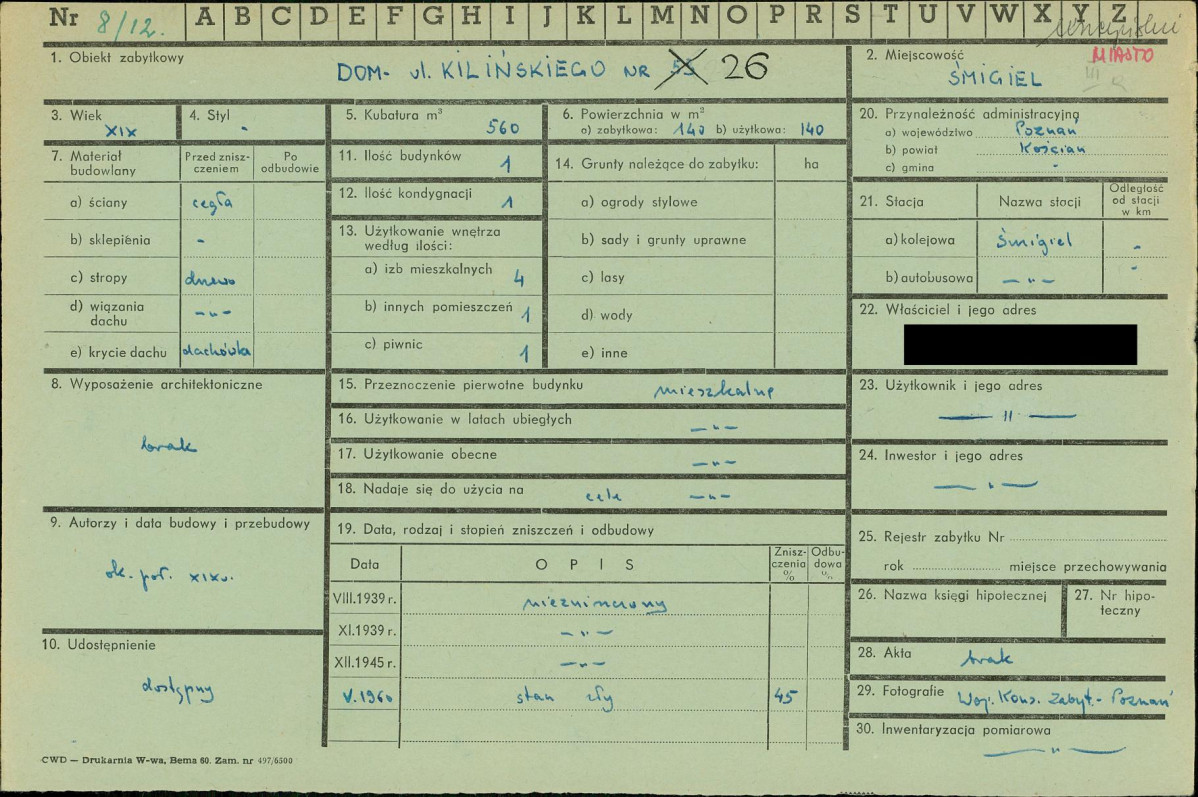 Nr 8/12. A B C D E F G H I J K L M N O P R S T U V W X Y Z
1. Obiekt zabytkowy
DOM- ul. KILIŃSKIEGO NR 26
2. Miejscowość MIASTO
ŚMIGIEL
3. Wiek
XIX
4. Styl
-
5. Kubatura m³
560
6. Powierzchnia w m²
a) zabytkowa: 140 b) użytkowa: 140
7. Materiał budowlany
Przed zniszczeniem
Po odbudowie
a) ściany cegła
b) sklepienia -
c) stropy drewo
d) wiązania dachu -„-
e) krycie dachu dachówka
8. Wyposażenie architektoniczne
brak
9. Autorzy i data budowy i przebudowy
ok. poł. XIXw.
10. Udostępnienie
dostępny
11. Ilość budynków 1
12. Ilość kondygnacji 1
13. Użytkowanie wnętrza
według ilości:
a) izb mieszkalnych 4
b) innych pomieszczeń 1
c) piwnic 1
14. Grunty należące do zabytku: ha
a) ogrody stylowe
b) sady i grunty uprawne
c) lasy
d) wody
e) inne
15. Przeznoczenie pierwotne budynku mieszkalne
16. Użytkowanie w latach ubiegłych -„-
17. Użytkowanie obecne -„-
18. Nadaje się do użycia na cele -„-
19. Data, rodzaj i stopień zniszczeń i odbudowy
Data OPIS Zniszczenia % Odbudowa %
VIII.1939 r. niezniszczony
XI.1939 r. -„-
XII.1945 r. -„-
V.1960 stan zły 45
20. Przynależność administracyjną
a) województwo Poznań
b) powiat Kościan
c) gmina -
21. Stacja Nazwa stocji Odległość od stacji w km
a) kolejowa Śmigiel -
b) autobusowa -„- -
22. Właściciel i jego adres
23. Użytkownik i jego adres
— „ —
24. Inwestor i jego adres
— „ —
25. Rejestr zabytku Nr
rok miejsce przechowywania
26. Nazwa księgi hipotecznej
27. Nr hipoteczny
28. Akta brak
29. Fotografie Woj. Kons. Zabyt.- Poznań
30. Inwentaryzacja pomiarowa
— „ —
CWD – Drukarnia W-wa, Bema 60. Zam. nr 497/6500